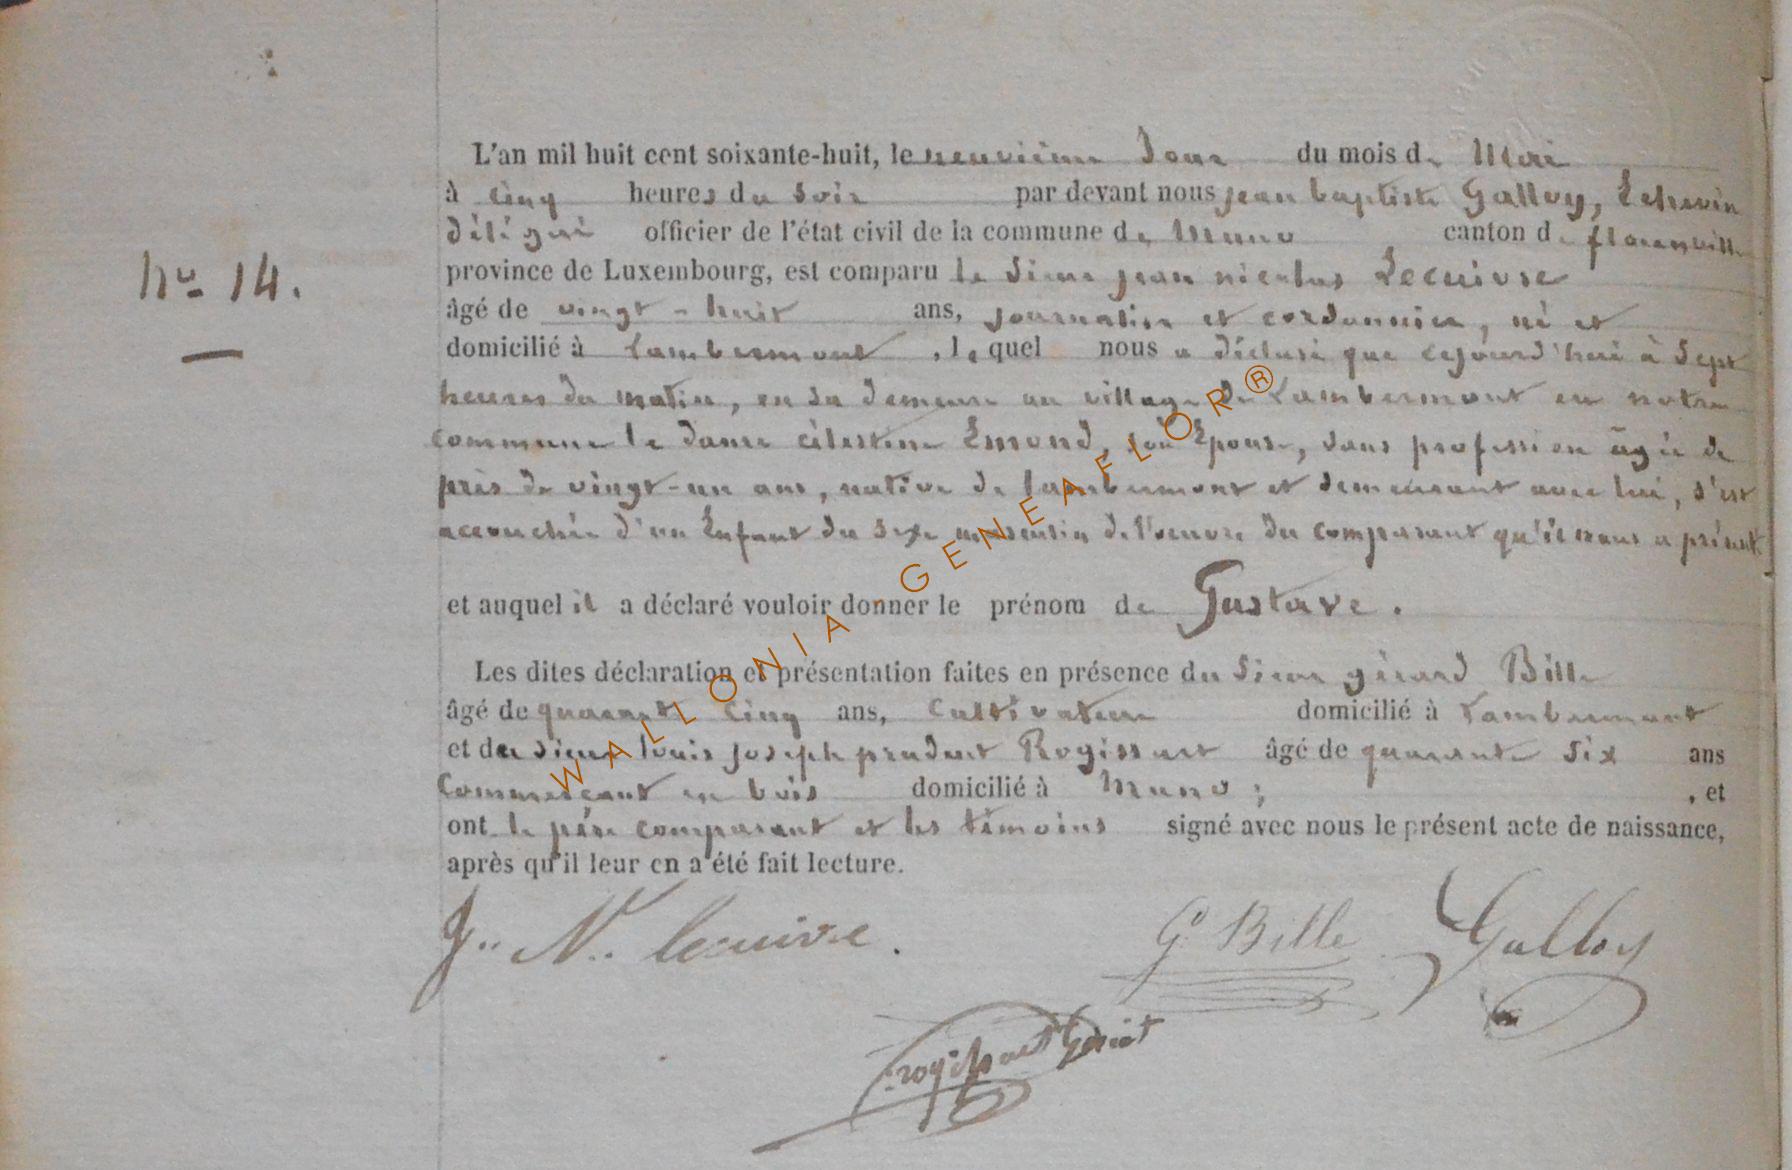 L'an mil huit cent soixante-huit, le neuvième Jour du mois de Mai
à cinq heures du Soir par devant nous jean baptiste Galloy, Echevin
délégué officier de l'état civil de la commune de Muno canton de florenville
province de Luxembourg, est comparu le Sieur jean nicolas Lecuivre
No 14.
âgé de vingt-huit ans, journalier et cordonnier, né et
domicilié à Lambermont, lequel nous a déclaré que cejourd'hui à Sept
heures du matin, en sa demeure au village de Lambermont en notre
commune la dame célestine Emond, son Epouse, sans profession âgée de
près de vingt-un ans, native de lambermont et demeurant avec lui, s'est
accouchée d'un Enfant du sexe masculin de l'oeuvre du comparant qu'il nous a présenté
et auquel il a déclaré vouloir donner le prénom de Gustave.
Les dites déclaration et présentation faites en présence du Sieur gérard Bille
âgé de quarante cinq ans, Cultivateur domicilié à Lambermont
et du sieur louis joseph prudent Rogissart âgé de quarante six ans
Commerçant en bois domicilié à Muno ; , et
ont le père comparant et les témoins signé avec nous le présent acte de naissance,
après qu'il leur en a été fait lecture.
J. N. lecuivre. Gd Bille Galloy
rogissart
WALLONIA GENEAFLOR®